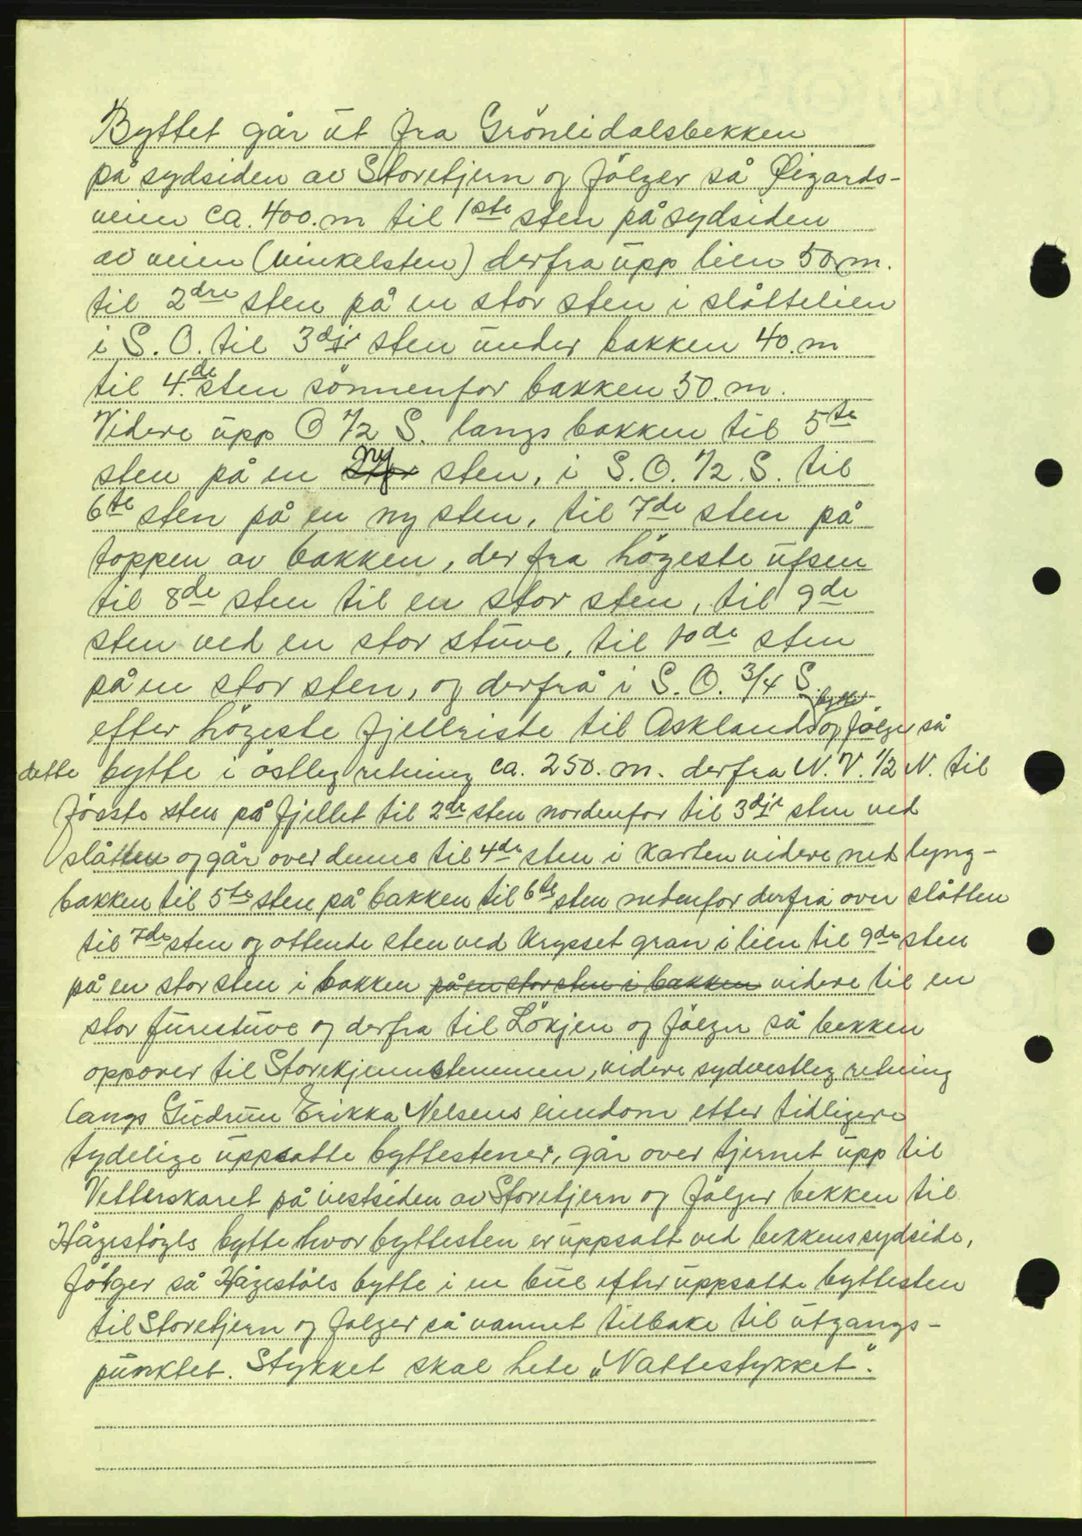 Byttet går ut fra Grönlidalsbekken
på sydsiden av Storetjern og fölger så Øigards-
veien ca. 400. m til 1ste sten på sydsiden
av veien (vinkelsten) derfra upp lien 50 m.
til 2dre sten på en stor sten i slåttelien
i S. O. til 3dje sten under bakken 40. m
til 4.de sten sönnenfor bakken 50. m.
Videre upp O 1/2 S. langs bakken til 5te
sten på en ny sten, i S. O. 1/2. S. til
6te sten på en ny sten, til 7de sten på
toppen av bakken, der fra högeste ufsen
til 8de sten til en stor sten, til 9de
sten ved en stor stuve, til 10de sten
på en stor sten, og derfrå i S. O. 3/4 S.
efter högeste fjellriste til Asklands bytte og fölger så
dette bytte i östleg retning ca. 250. m. derfra N. V. 1/2 N. til
förste sten på fjellet til 2de sten nordenfor til 3dje sten ved
slåtten og går over denne til 4de sten i kanten videre ned lyng-
bakken til 5te sten på bakken til 6te sten nedenfor derfra over slåtten
til 7de sten og ottende sten ved krysset gran i lien til 9de sten
på en stor sten i bakken på en stor sten i bakken videre til en
stor furestuve og derfra til Lökjen og fölger så bekken
oppover til Storekjennstemmen, videre sydvestleg retning
langs Gudrun Erikka Nelsens eiendom etter tidligere
tydelige uppsatte byttestener, går over tjernet upp til
Vetterskaret på vestsiden av Storetjern og fölger bekken til
Hågestögls bytte hvor byttesten er uppsatt ved bekkens sydside,
fölger så Hågestöls bytte i en bue efter uppsatte byttesten
til Storetjern og fölger så vannet tilbake til utgangs-
punktet. Stykket skal hete „Nattestykket".